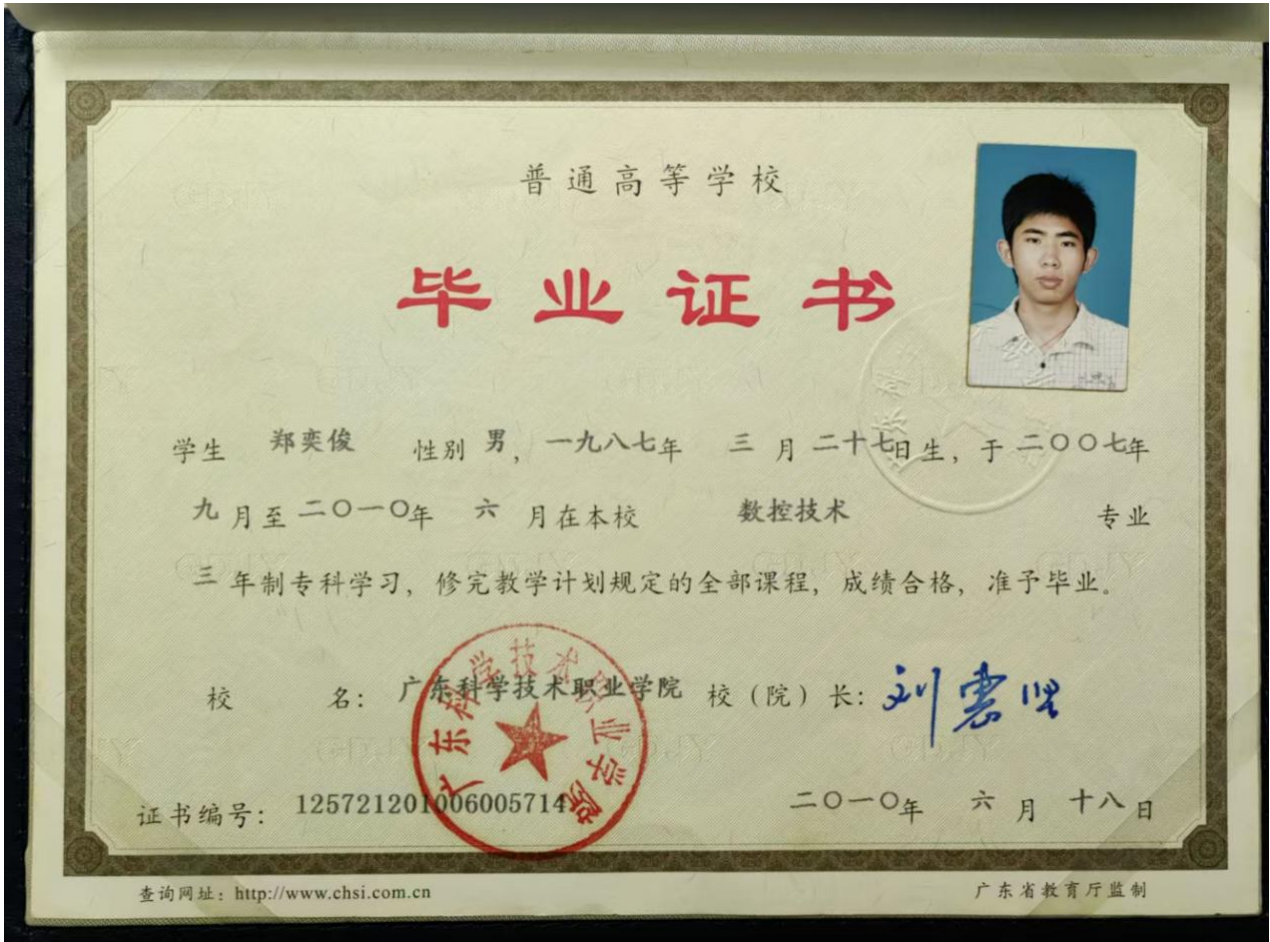 普通高等学校
毕业证书
学生 郑奕俊 性别 男，一九八七年 三 月 二十七日生，于 二〇〇七年
九 月至 二〇一〇年 六 月在本校 数控技术 专业
三 年制专科学习，修完教学计划规定的全部课程，成绩合格，准予毕业。
校 名：广东科学技术职业学院 校（院）长：刘
广东科学技术职业学院
证书编号：125721201006005714 二〇一〇年 六 月 十八 日
查询网址：http://www.chsi.com.cn 广东省教育厅监制